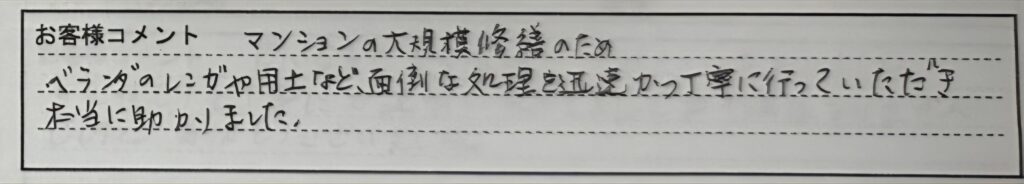 お客様コメント マンションの大規模修繕のため
ベランダのレンガや用土など、面倒な処理を迅速かつ丁寧に行っていただき
本当に助かりました。